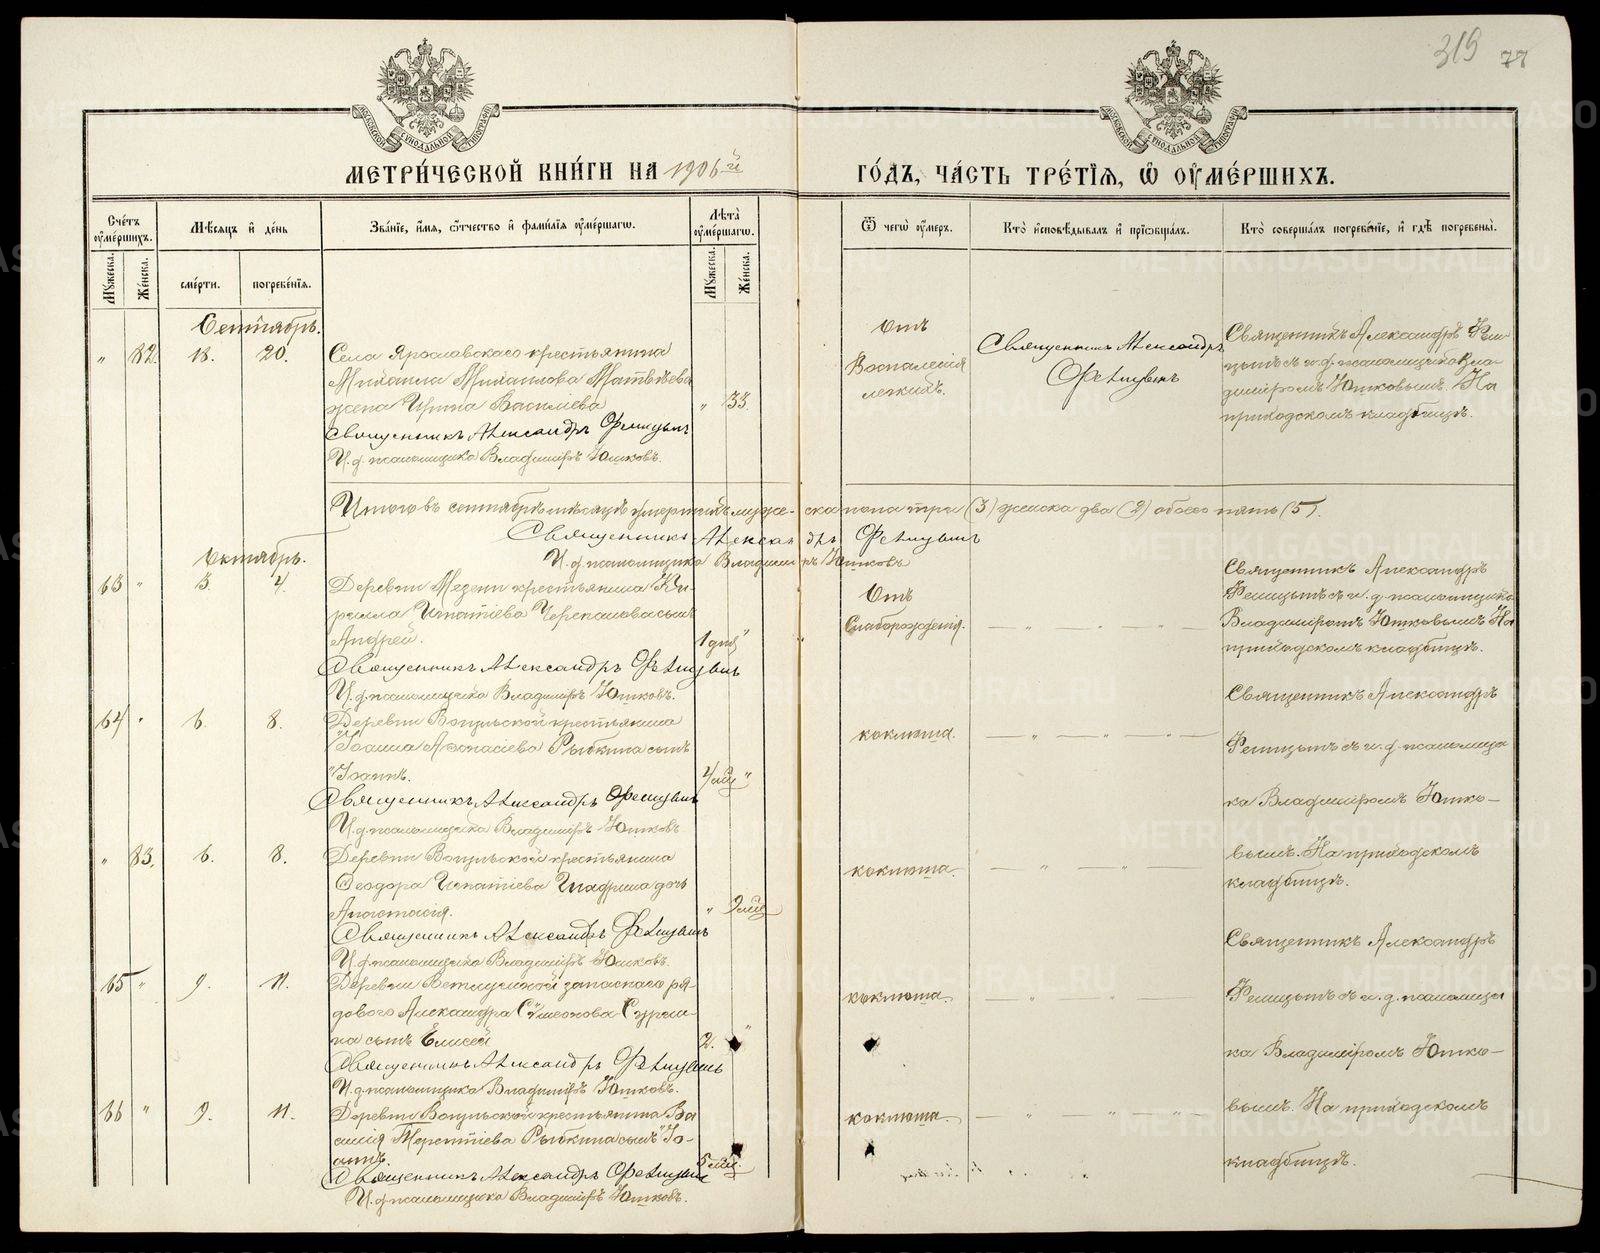 319 77
МЕТРИ́ЧЕСКОЙ КНИ́ГИ НА 1906й ГО́ДЪ, ЧА́СТЬ ТРЕ́ТІѦ, Ѽ ОУМЕ́РШИХЪ.
Сче́тъ оумершихъ.
Мѣсяцъ и́ де́нь
Зва́ніе, и́мя, ѿтчество и́ фами́лія оумершагѡ.
Лѣта̀ оумершагѡ.
Ѿ чегѡ̀ оумеръ.
Кто̀ и́сповѣдывалъ и́ пріѡбща́лъ.
Кто̀ соверша́лъ погребе́ніе, и́ гдѣ̀ погребены̀.
Мужеска. Же́нска. сме́рти. погребе́нія. Мужеска. Же́нска.
Сентябрь.
" 82. 18. 20. Села Ярославскаго крестьянина
Михаила Михаилова Матвѣева
жена Ирина Василіева " 33.
Священникъ Александръ Фелицынъ
И.д. псаломщика Владиміръ Юшковъ.
Отъ
Воспаленія
легкихъ.
Священникъ Александръ
Фелицынъ
Священникъ Александръ Фели-
цынъ съ и.д. псаломщика Вла-
диміромъ Юшковымъ. На
приходскомъ кладбищѣ.
Итого въ сентябрѣ мѣсяцѣ умершихъ муже-ска пола три (3) женска два (2) обоего пять (5).
Священникъ Александръ Фелицынъ
И.д. псаломщика Владиміръ Юшковъ
Октябрь.
63 " 3. 4. Деревни Мезени крестьянина Ки-
рилла Игнатіева Черепанова сынъ
Андрей. 1 дня "
Священникъ Александръ Фелицынъ
И.д. псаломщика Владиміръ Юшковъ.
Отъ
Слаборожденія.
Священникъ Александръ
Фелицынъ съ и.д. псаломщика
Владиміромъ Юшковымъ На
приходскомъ кладбищѣ.
64 " 6. 8. Деревни Вогульской крестьянина
Іоанна Аѳонасіева Рыбкина сынъ
Іоаннъ. 4 мѣс "
Священникъ Александръ Фелицынъ
И.д. псаломщика Владиміръ Юшковъ
коклюша.
Священникъ Александръ
Фелицынъ съ и.д. псаломщи
ка Владиміромъ Юшко-
вымъ. На приходскомъ
кладбищѣ.
" 83. 6. 8. Деревни Вогульской крестьянина
Ѳеодора Игнатіева дочь
Анастасія. " 9 мѣс
Священникъ Александръ Фелицынъ
И.д. псаломщика Владиміръ Юшковъ.
коклюша.
65 " 9. 11. Деревни запаснаго ря-
дового Александра Симеонова
на сынъ Елисей 2. "
Священникъ Александръ Фелицынъ
И.д. псаломщика Владиміръ Юшковъ.
коклюша.
Священникъ Александръ
Фелицынъ съ и.д. псаломщи
ка Владиміромъ Юшко-
вымъ. На приходскомъ
кладбищѣ.
66 " 9. 11. Деревни Вогульской крестьянина Ва
силія Терентіева Рыбкина сынъ Іо-
аннъ. 5 мѣс.
Священникъ Александръ Фелицынъ
И.д. псаломщика Владиміръ Юшковъ.
коклюша.